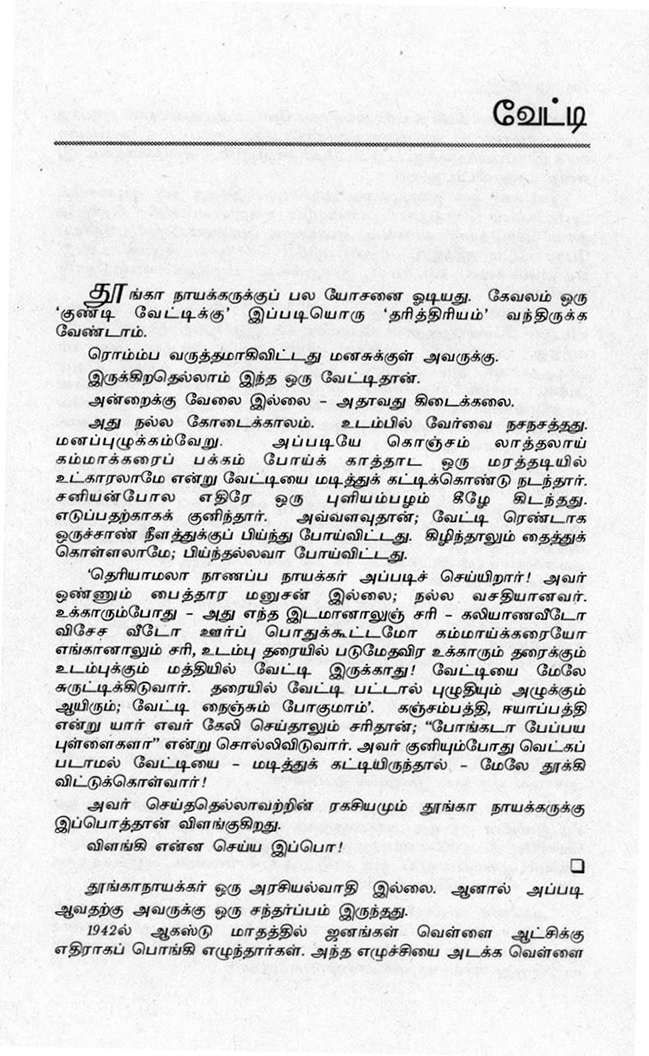 வேட்டி
தூங்கா நாயக்கருக்குப் பல யோசனை ஓடியது. கேவலம் ஒரு
‘குண்டி வேட்டிக்கு’ இப்படியொரு ‘தரித்திரியம்’ வந்திருக்க
வேண்டாம்.
ரொம்ம்ப வருத்தமாகிவிட்டது மனசுக்குள் அவருக்கு.
இருக்கிறதெல்லாம் இந்த ஒரு வேட்டிதான்.
அன்றைக்கு வேலை இல்லை – அதாவது கிடைக்கலை.
அது நல்ல கோடைக்காலம். உடம்பில் வேர்வை நசநசத்தது.
மனப்புழுக்கம்வேறு. அப்படியே கொஞ்சம் லாத்தலாய்
கம்மாக்கரைப் பக்கம் போய்க் காத்தாட ஒரு மரத்தடியில்
உட்காரலாமே என்று வேட்டியை மடித்துக் கட்டிக்கொண்டு நடந்தார்.
சனியன்போல எதிரே ஒரு புளியம்பழம் கீழே கிடந்தது.
எடுப்பதற்காகக் குனிந்தார். அவ்வளவுதான்; வேட்டி ரெண்டாக
ஒருச்சாண் நீளத்துக்குப் பிய்ந்து போய்விட்டது. கிழிந்தாலும் தைத்துக்
கொள்ளலாமே; பிய்ந்தல்லவா போய்விட்டது.
‘தெரியாமலா நாணப்ப நாயக்கர் அப்படிச் செய்யிறார்! அவர்
ஒண்ணும் பைத்தார மனுசன் இல்லை; நல்ல வசதியானவர்.
உக்காரும்போது – அது எந்த இடமானாலுஞ் சரி – கலியாணவீடோ
விசேச வீடோ ஊர்ப் பொதுக்கூட்டமோ கம்மாய்க்கரையோ
எங்கானாலும் சரி, உடம்பு தரையில் படுமேதவிர உக்காரும் தரைக்கும்
உடம்புக்கும் மத்தியில் வேட்டி இருக்காது! வேட்டியை மேலே
சுருட்டிக்கிடுவார். தரையில் வேட்டி பட்டால் புழுதியும் அழுக்கும்
ஆயிரும்; வேட்டி நைஞ்சும் போகுமாம்’. கஞ்சம்பத்தி, ஈயாப்பத்தி
என்று யார் எவர் கேலி செய்தாலும் சரிதான்; “போங்கடா பேப்பய
புள்ளைகளா” என்று சொல்லிவிடுவார். அவர் குனியும்போது வெட்கப்
படாமல் வேட்டியை – மடித்துக் கட்டியிருந்தால் – மேலே தூக்கி
விட்டுக்கொள்வார்!
அவர் செய்ததெல்லாவற்றின் ரகசியமும் தூங்கா நாயக்கருக்கு
இப்பொத்தான் விளங்குகிறது.
விளங்கி என்ன செய்ய இப்பொ!
தூங்காநாயக்கர் ஒரு அரசியல்வாதி இல்லை. ஆனால் அப்படி
ஆவதற்கு அவருக்கு ஒரு சந்தர்ப்பம் இருந்தது.
1942ல் ஆகஸ்டு மாதத்தில் ஜனங்கள் வெள்ளை ஆட்சிக்கு
எதிராகப் பொங்கி எழுந்தார்கள். அந்த எழுச்சியை அடக்க வெள்ளை